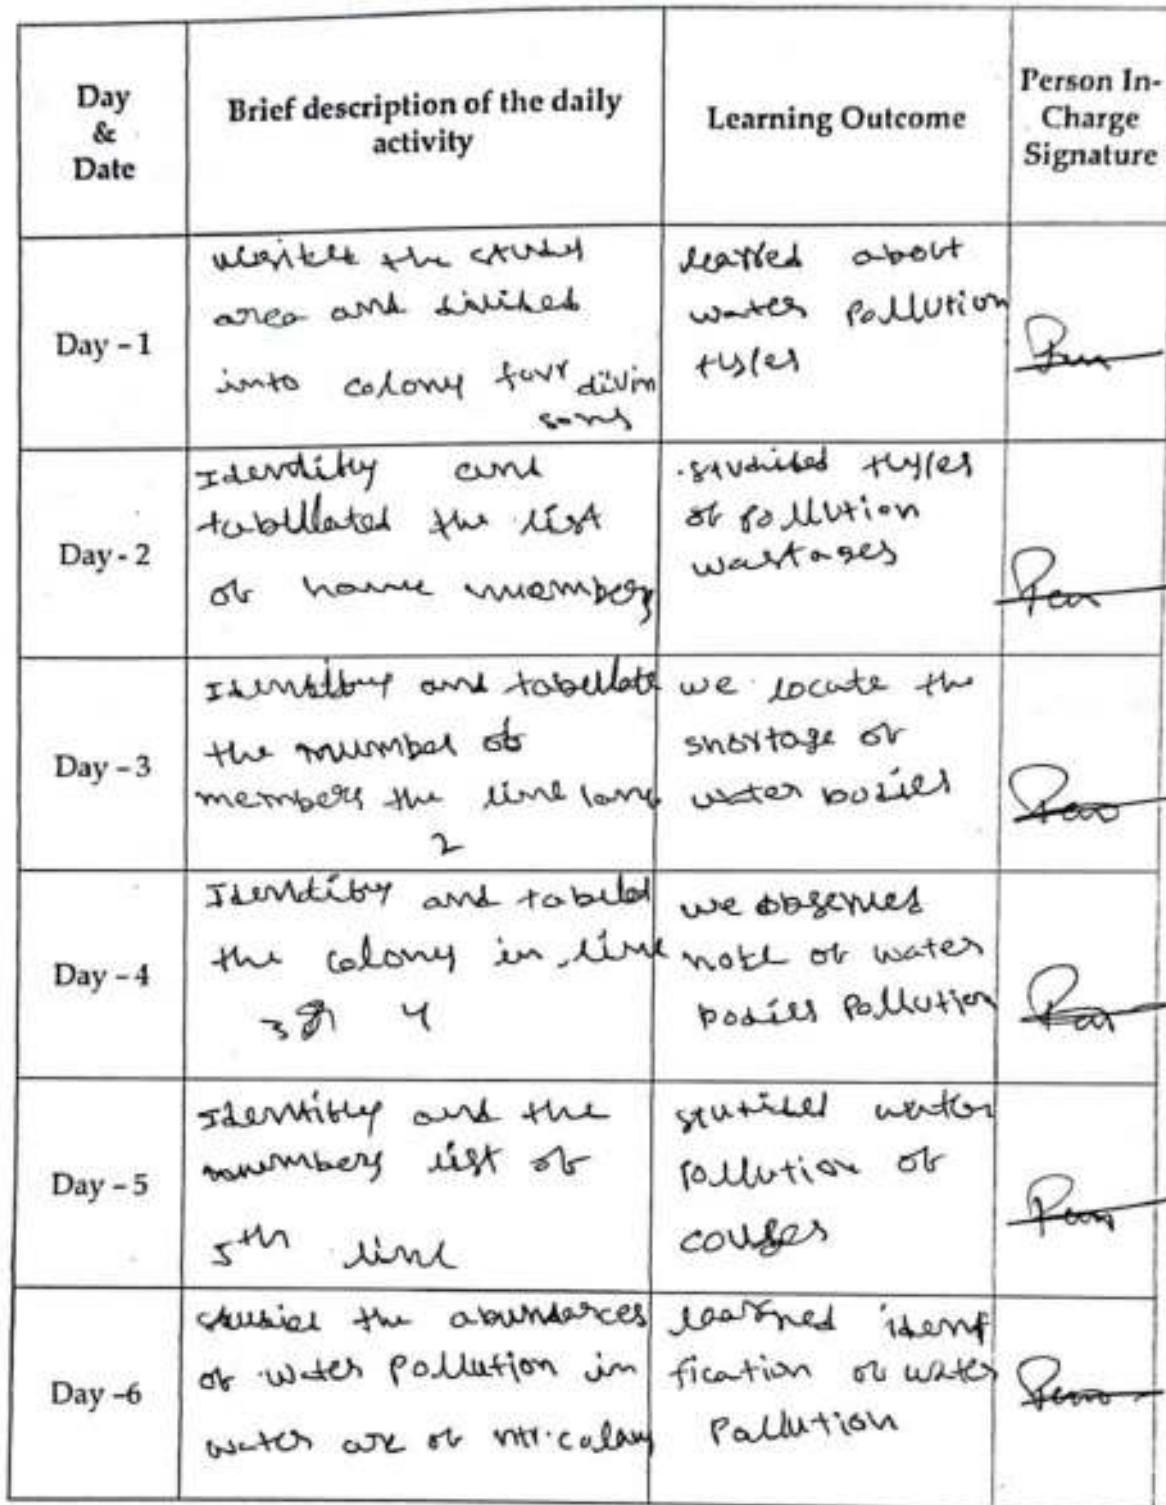 Day
&
Date
Brief description of the daily
activity
Learning Outcome
Person In-
Charge
Signature
Day - 1
the study
area and divided
into colony four divin
sons
learned about
water pollution
Day - 2
Identity and
tabullated the list
of house members
types
of pollution
wastages
Day - 3
and tabullate
the number of
members the line lane
2
we locate the
shortage of
water bodies
Day - 4
Identity and
the colony in line
3 4
we observed
of water
bodies Pollution
Day - 5
Identity and the
members list of
5th line
studied water
pollution of
couses
Day -6
studied the abundances
of water pollution in
water of ntr.colony
learned identi
fication of water
Pollution